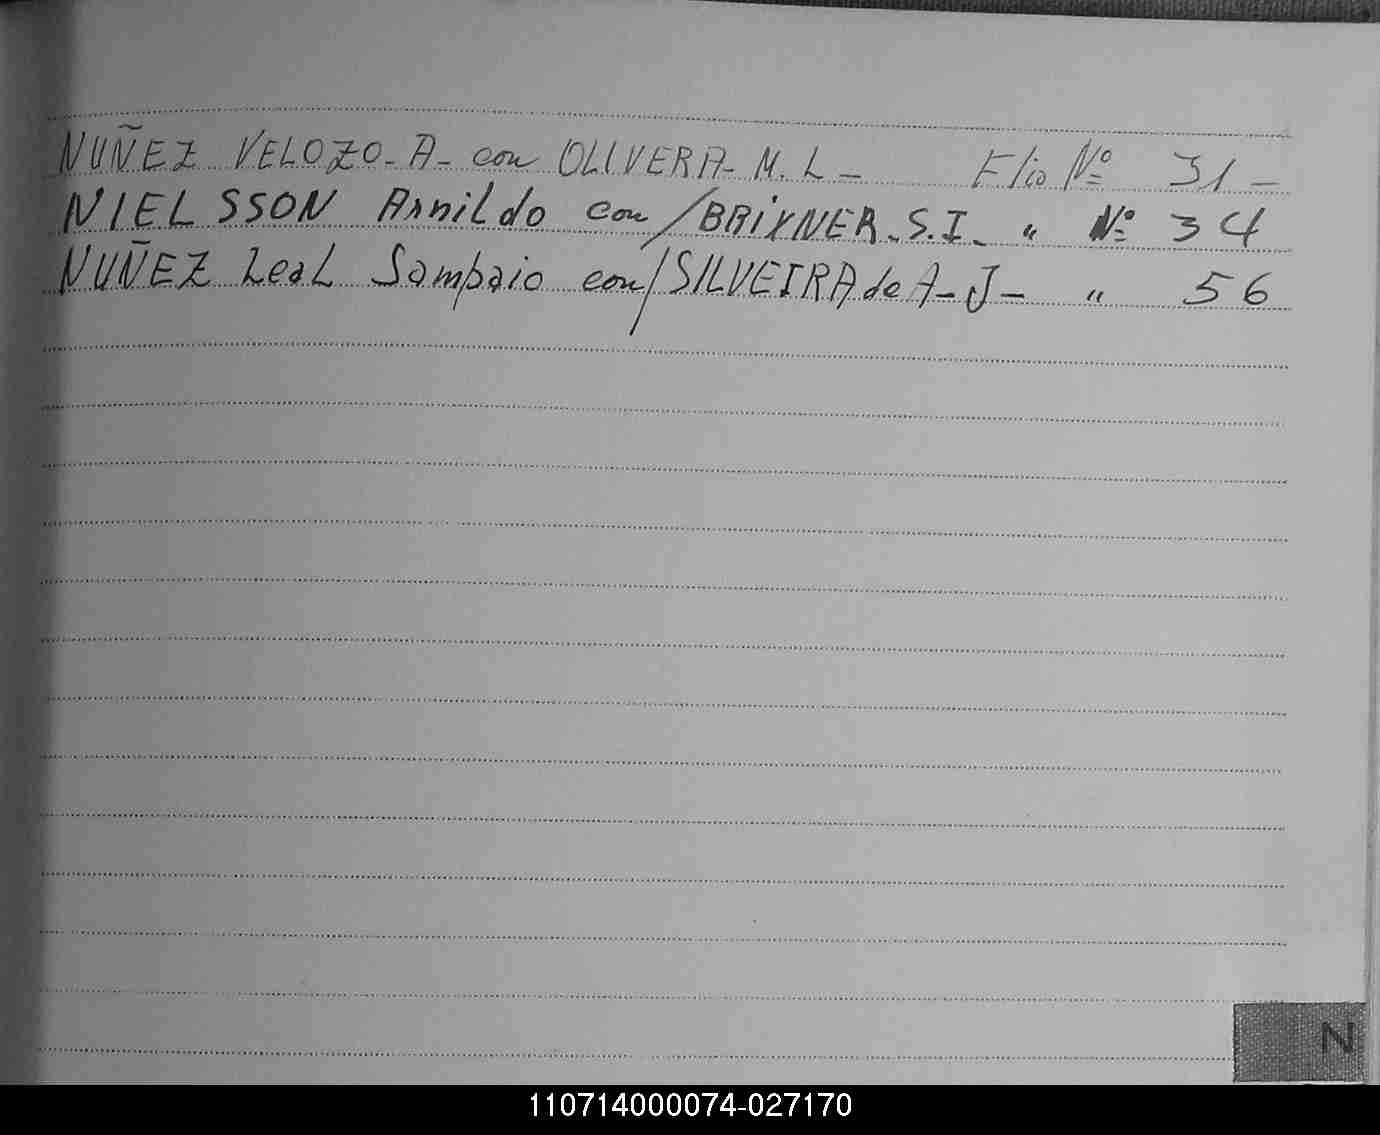 NUÑEZ VELOZO - A - con OLIVERA - M. L - Flio Nº 31 -
NIELSSON Arnildo con / BRIXNER - S. I. " Nº 34
NUÑEZ Leal Sampaio con / SILVEIRA de A - J - " 56
N
110714000074-027170